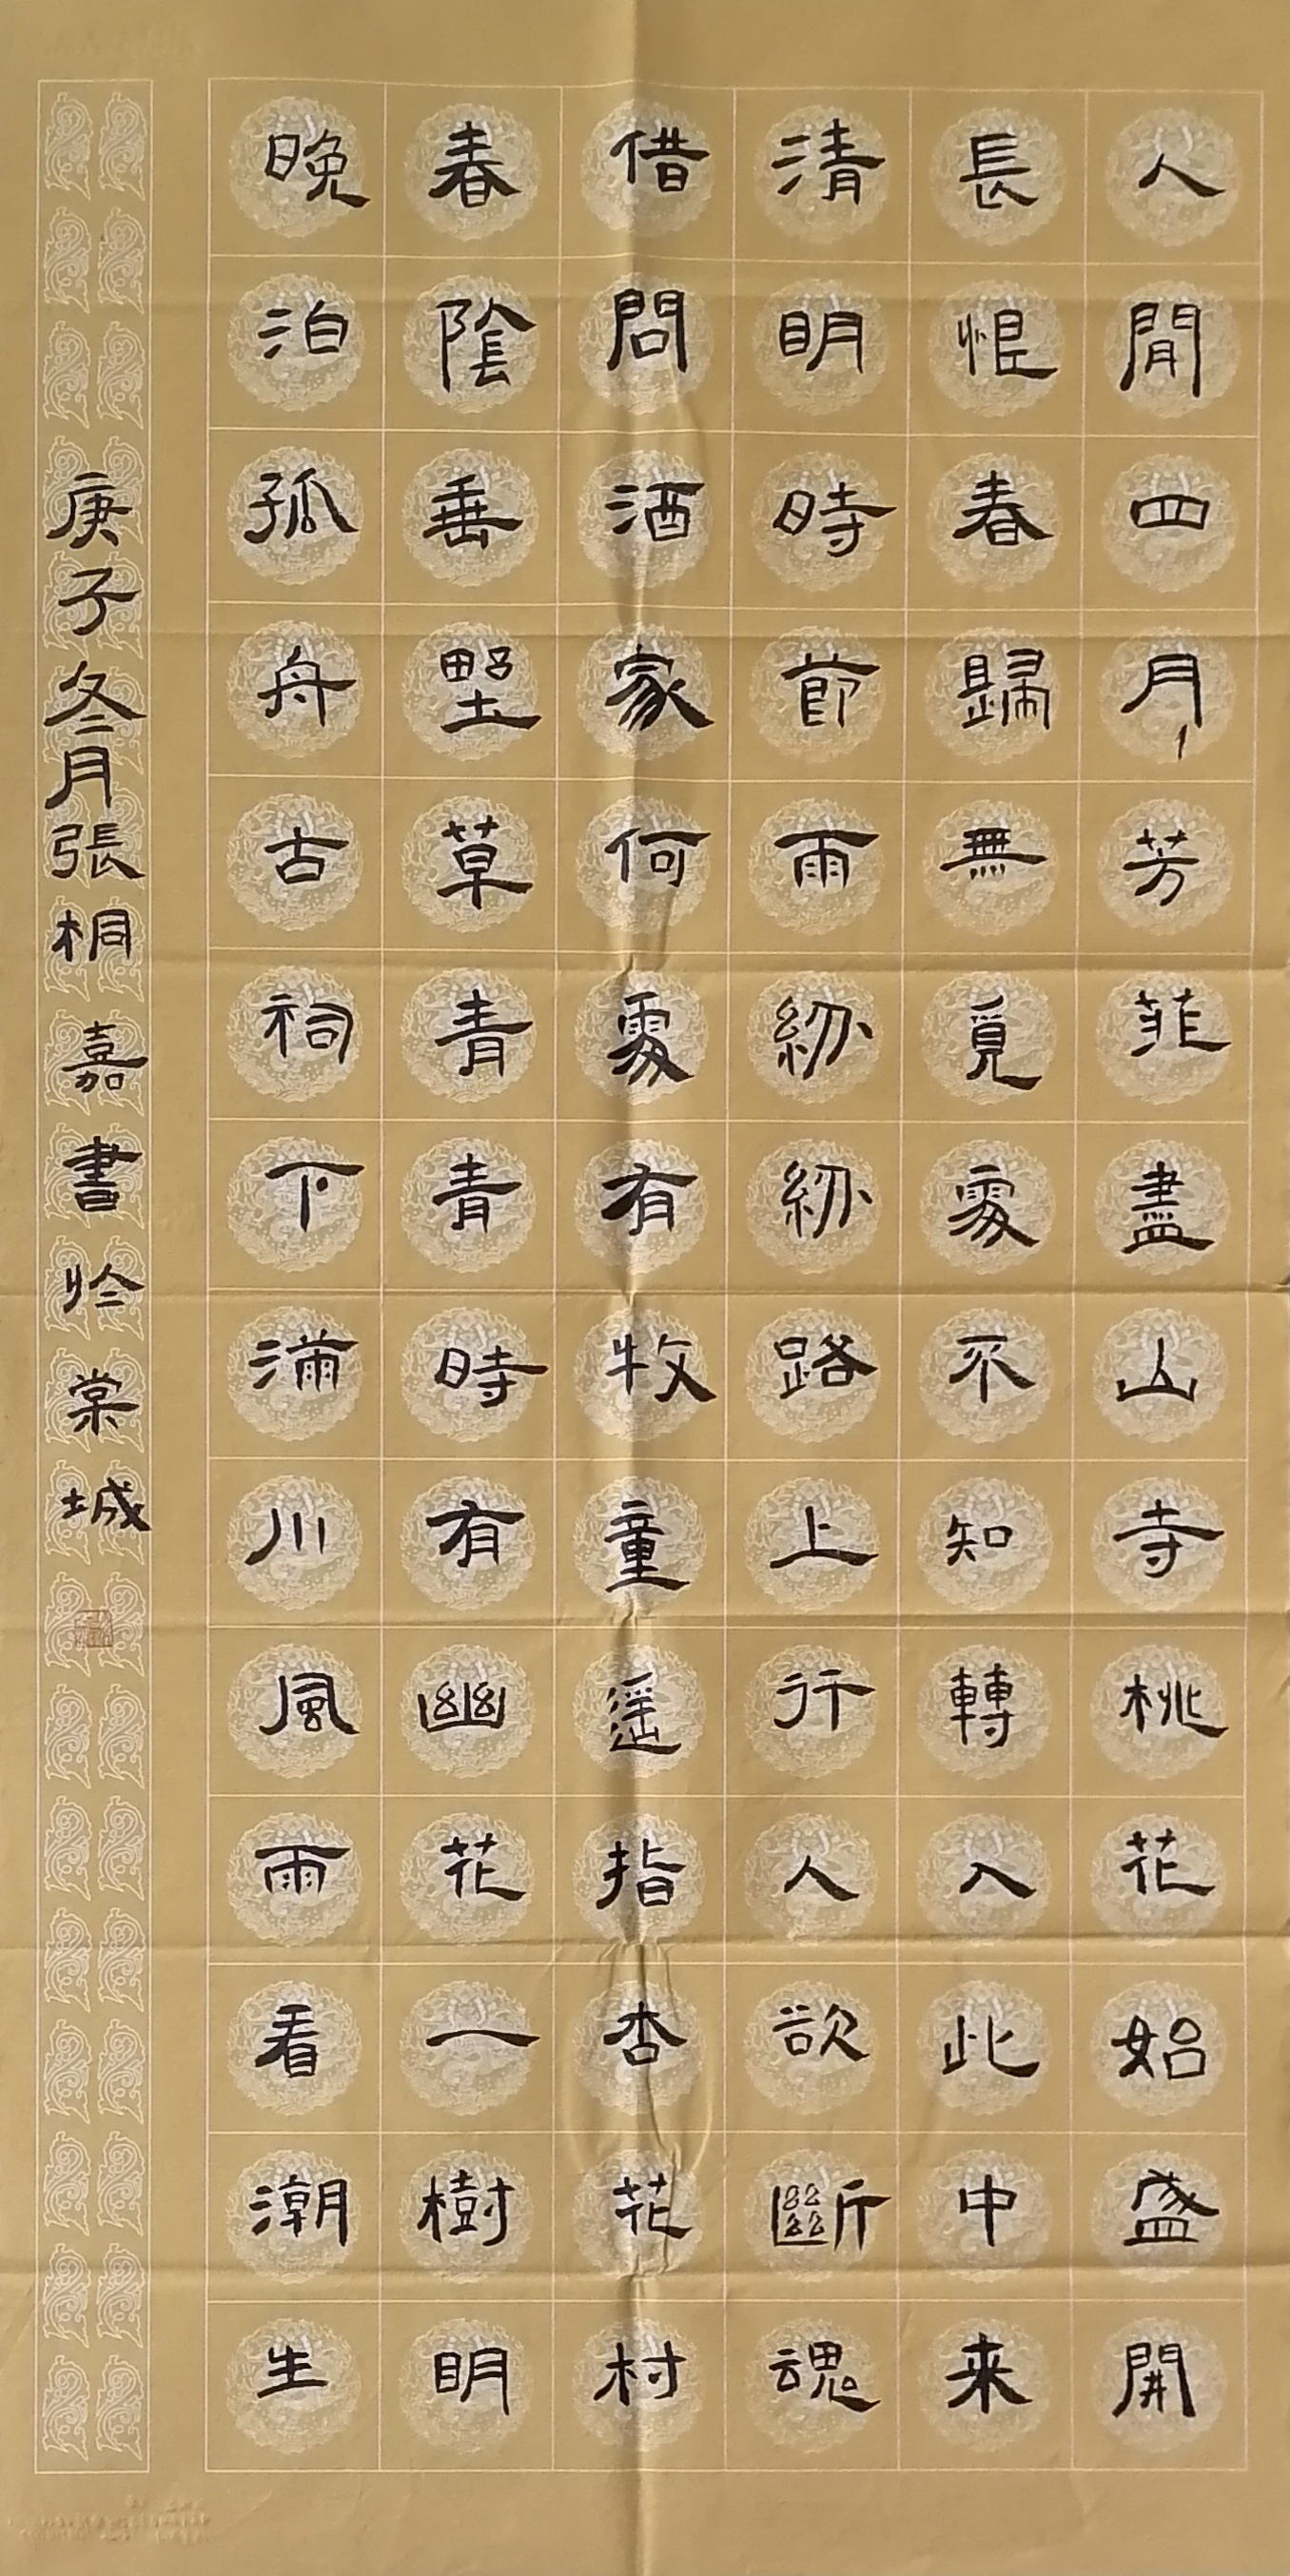 人閒四月芳菲盡山寺桃花始盛開
長恨春歸無覓處不知轉入此中来
清明時節雨紛紛路上行人欲斷魂
借問酒家何處有牧童遥指杏花村
春陰垂野草青青時有幽花一樹明
晚泊孤舟古祠下滿川風雨看潮生
庚子冬月張桐嘉書於棠城